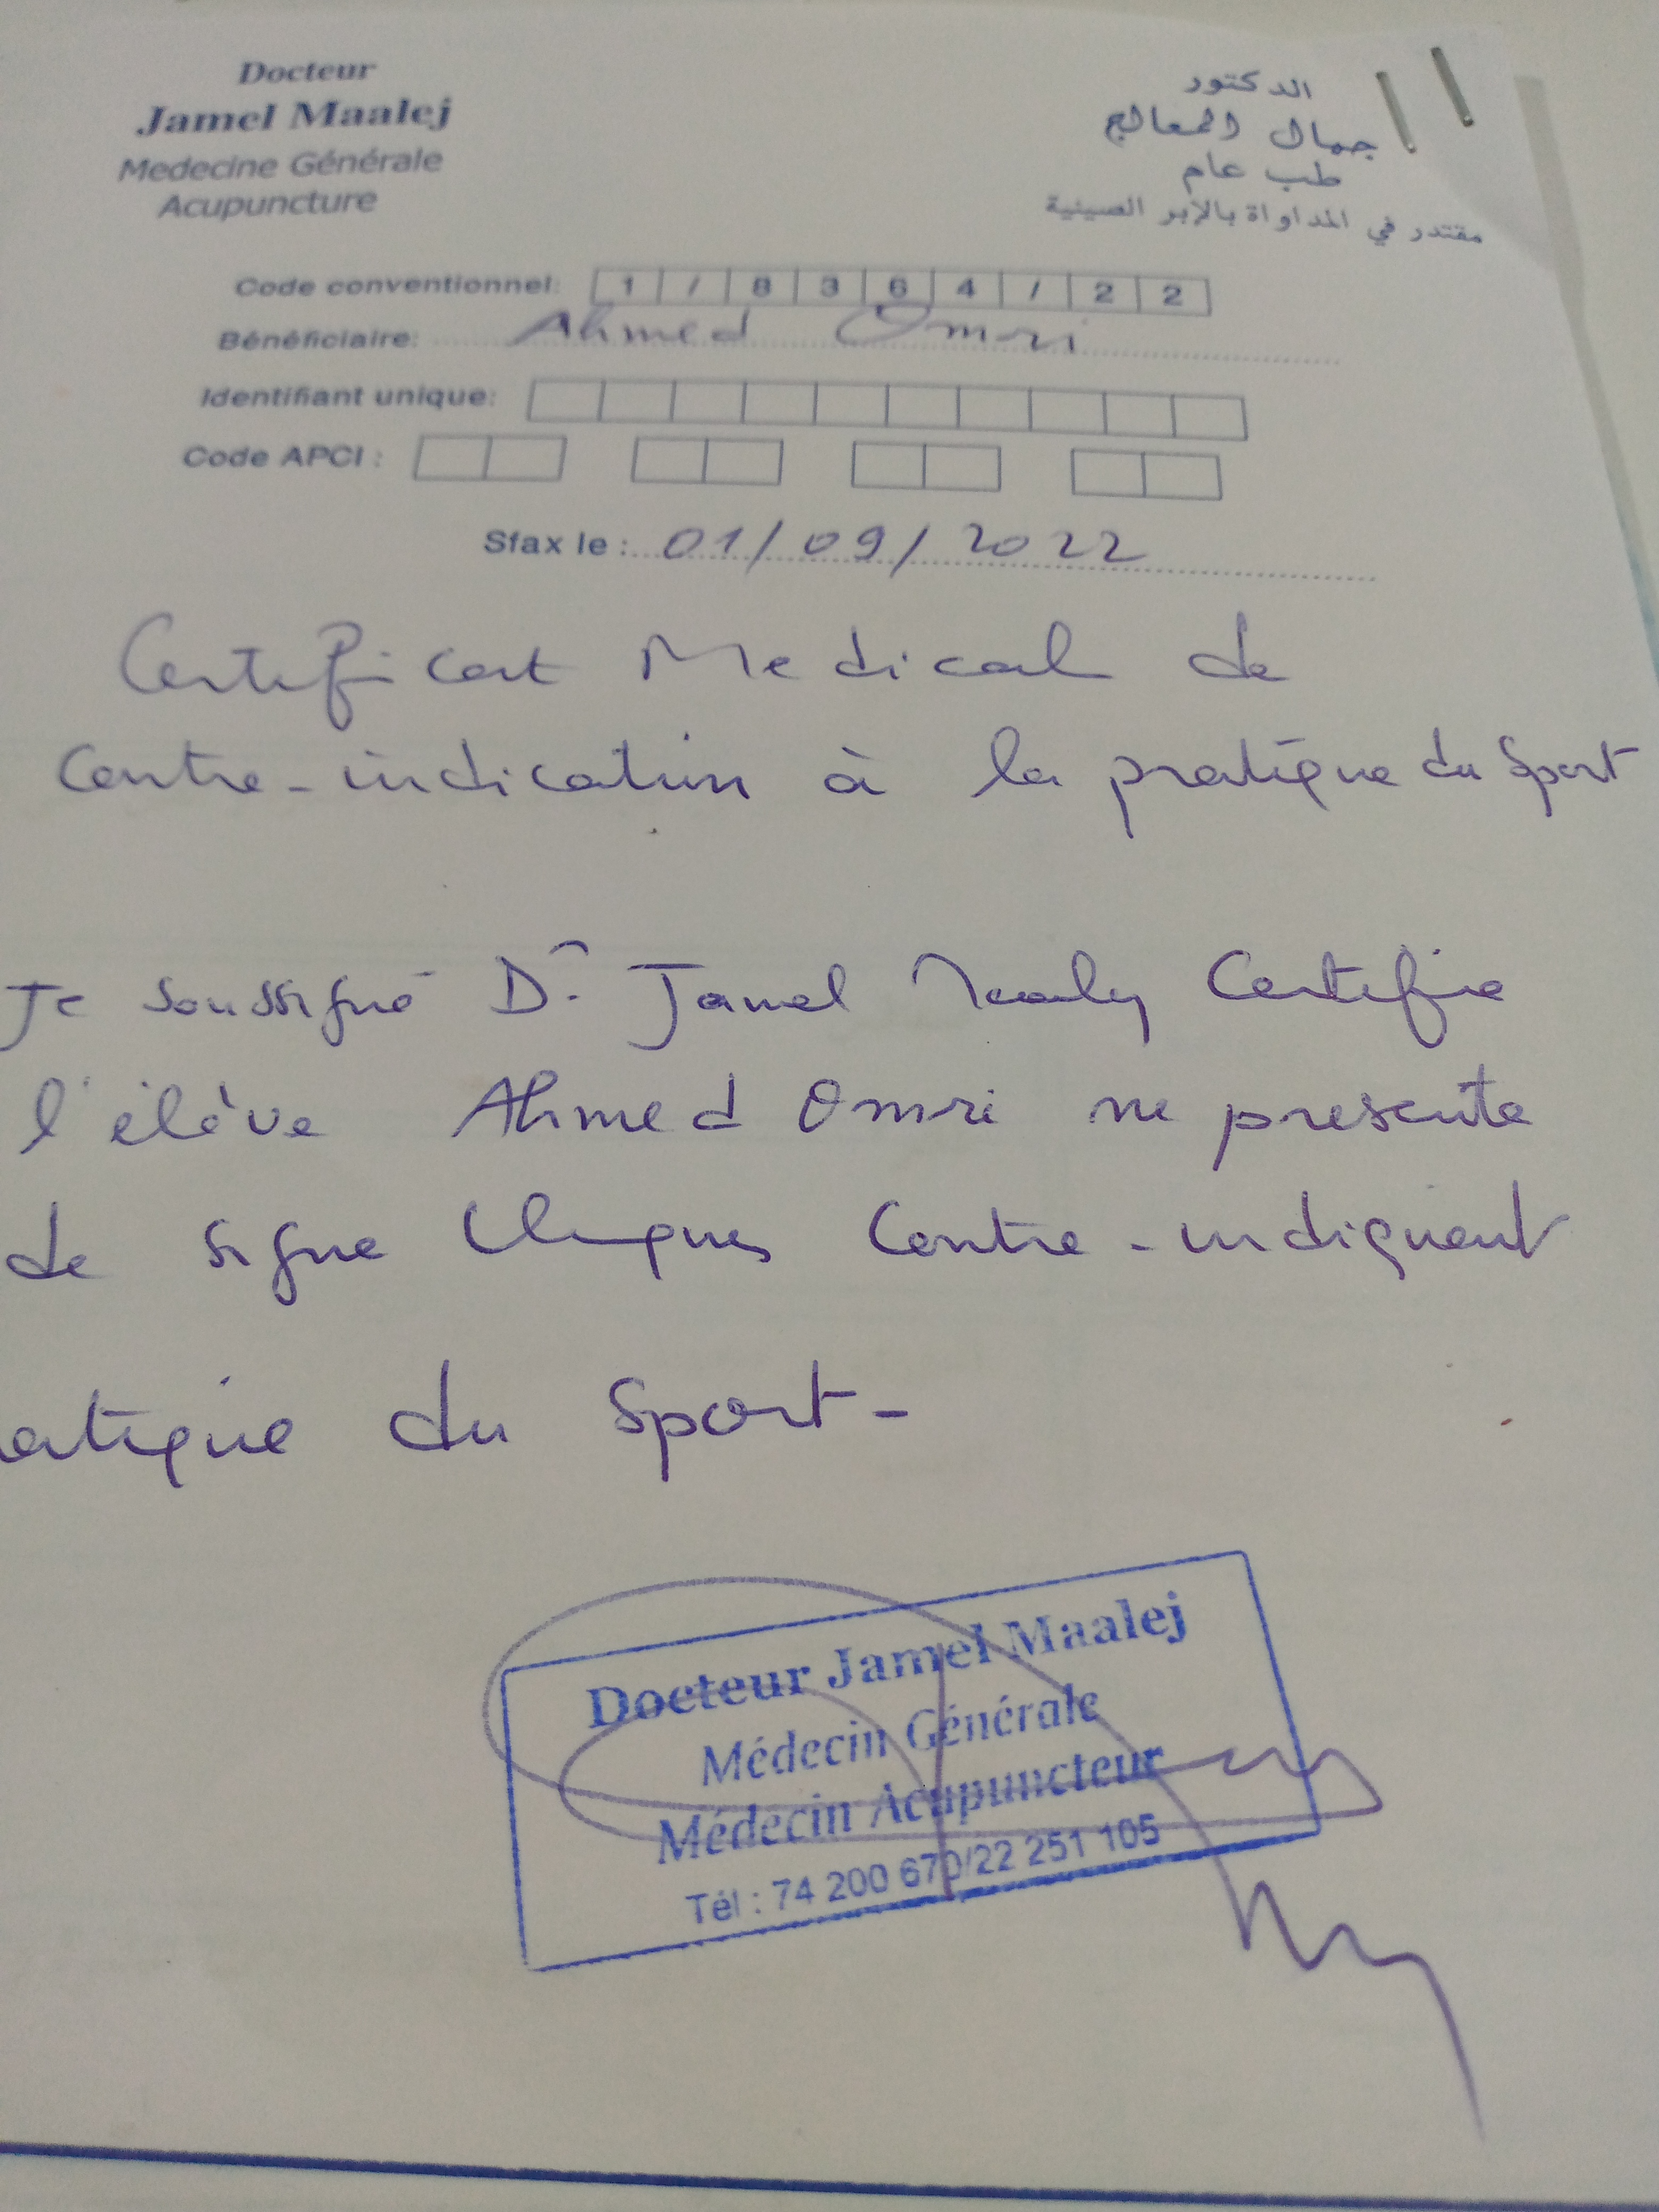 Docteur
Jamel Maalej
Medecine Générale
Acupuncture
الدكتور
جمال المعالج
طب عام
مقتدر في المداواة بالإبر الصينية
Code conventionnel: 1 / 8 3 6 4 / 2 2
Bénéficiaire: Ahmed Omri
Identifiant unique:
Code APCI :
Sfax le : 01/09/2022
Certificat Medical de
Contre-indication à la pratique du Sport
Je soussigné Dr Jamel Maalej Certifie
l'élève Ahmed Omri ne presente
de signe Cliniques Contre-indiquent
atique du Sport-
Docteur Jamel Maalej
Médecin Générale
Médecin Acupuncteur
Tél : 74 200 670/22 251 105